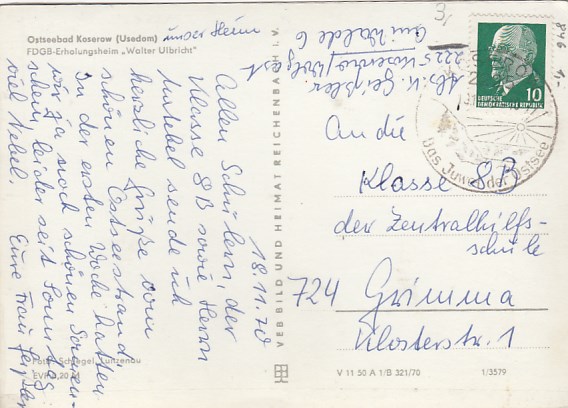 Ostseebad Koserow (Usedom)
FDGB-Erholungsheim „Walter Ulbricht"
unser Heim
18.11.70
Allen Schülern der
Klasse 8B sowie Herrn
sende ich
herzliche Grüße vom
schönen Ostseestrand.
In der ersten Woche hatten
wir ja noch schönen Sonnen-
schein, leider seit Sonntag
viel Nebel.
Eure Frau Geißler
Foto: Schlegel, Luitzenau
EVP 0,20 M
VEB BILD UND HEIMAT REICHENBACH I. V.
V 11 50 A 1/B 321/70
1/3579
3,
Abs. K. Geißler
2225
Am Walde 6
846
1,-
10
DEUTSCHE
DEMOKRATISCHE REPUBLIK
Das Juwel der Ostsee
An die
Klasse 8B
der Zentralhilfs-
schule
724 Grimma
Klosterstr. 1